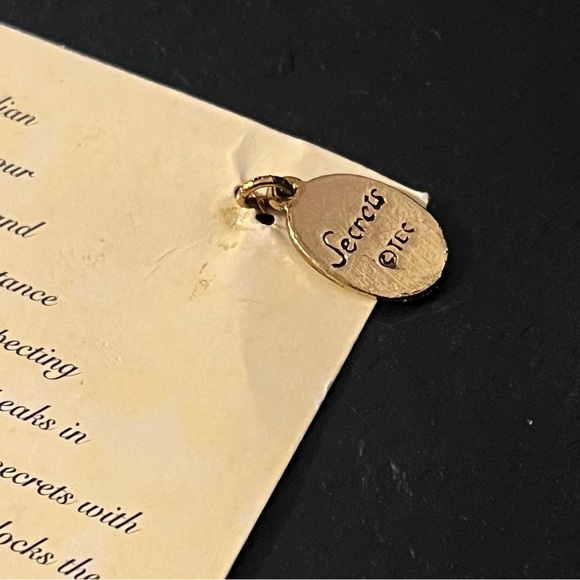 dian
our
and
tance
pecting
eaks in
secrets with
locks the
Secrets
©TEC